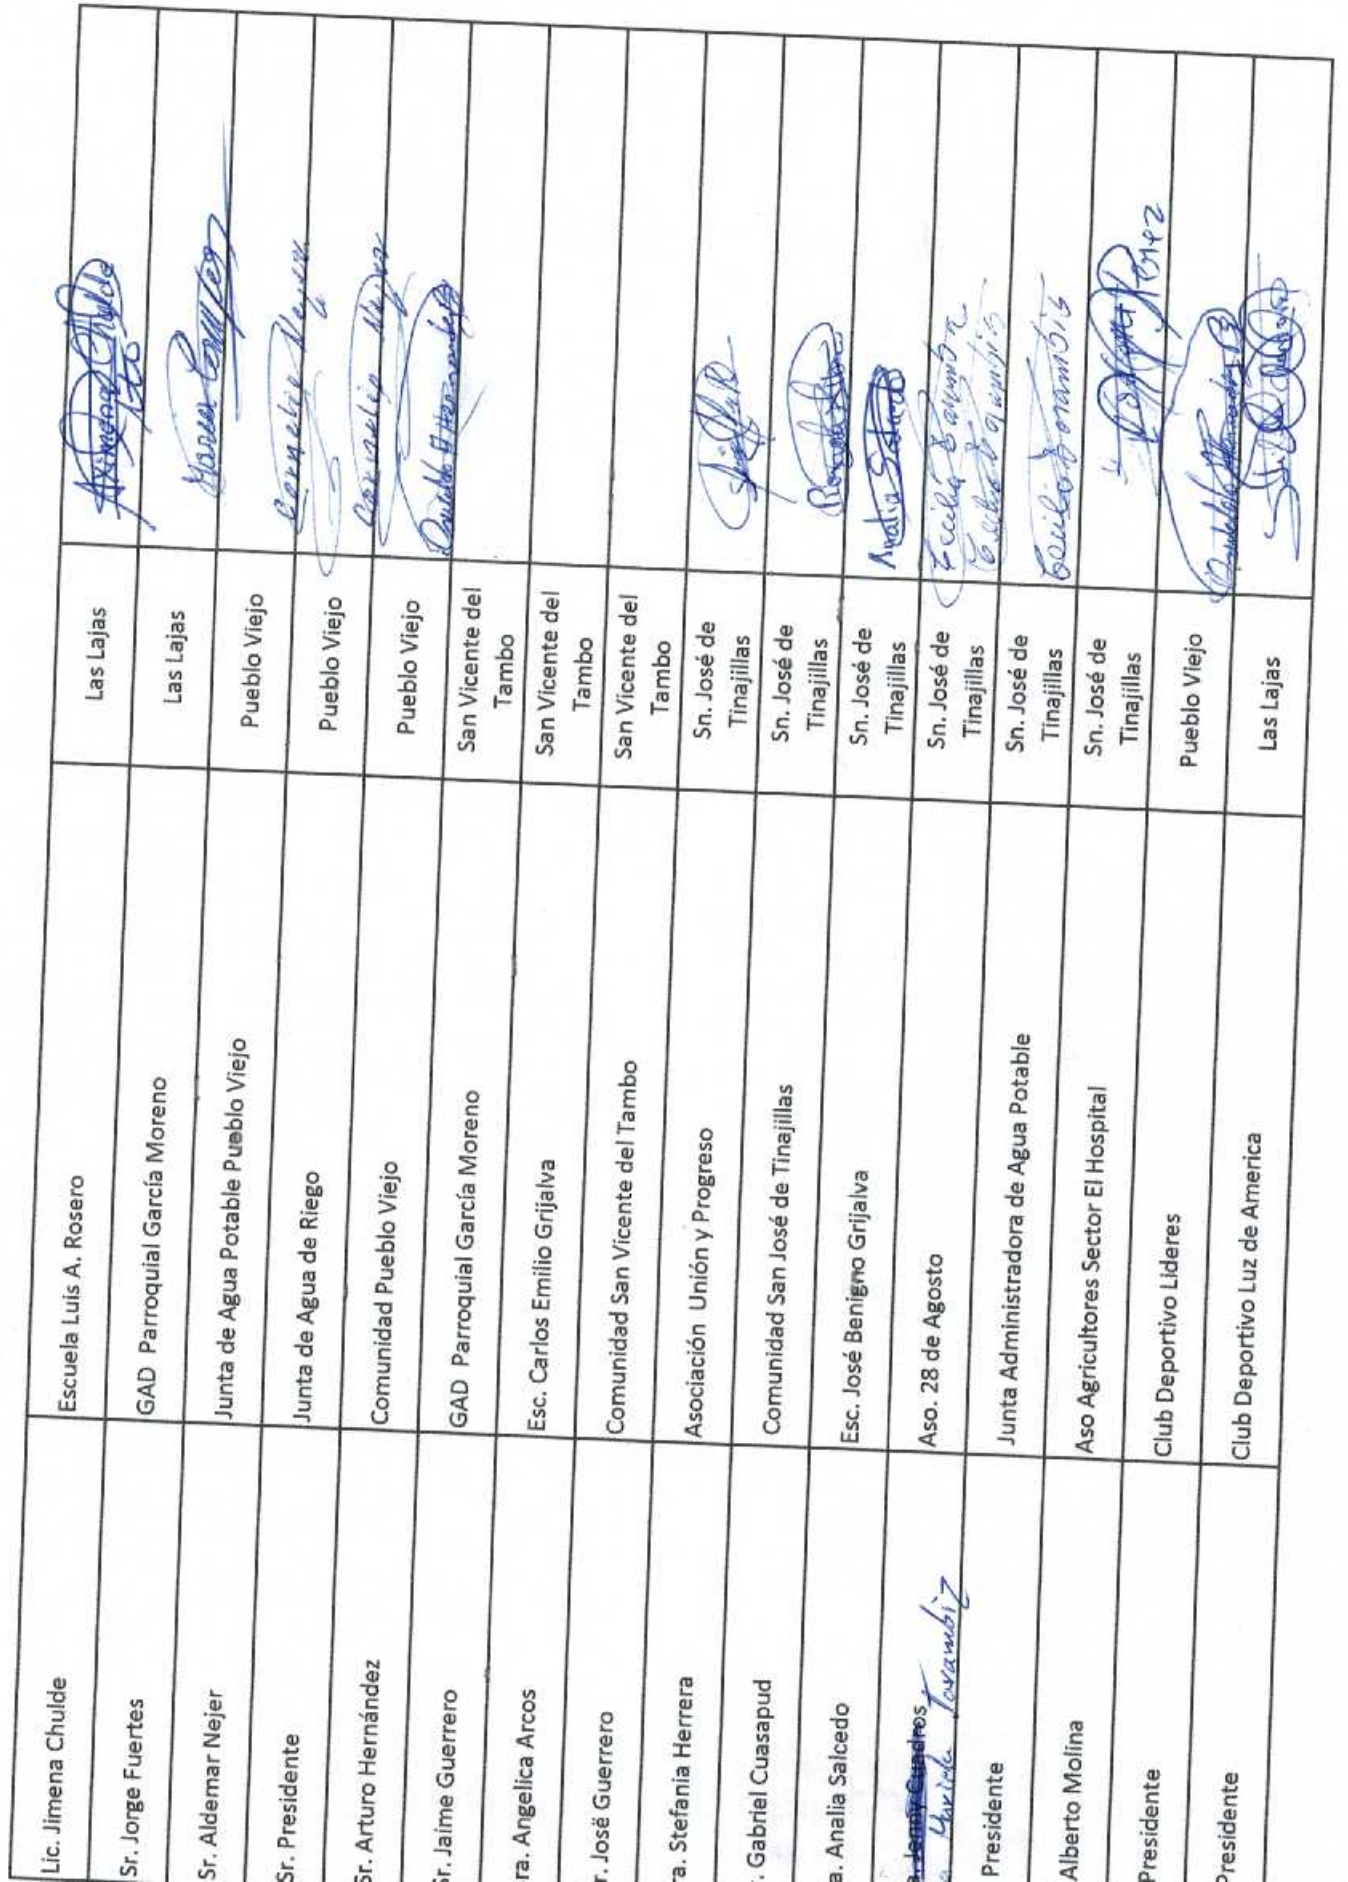 Lic. Jimena Chulde Escuela Luis A. Rosero Las Lajas Jimena Chulde
Sr. Jorge Fuertes GAD Parroquial García Moreno Las Lajas
Sr. Aldemar Nejer Junta de Agua Potable Pueblo Viejo Pueblo Viejo Cornelio Nejer
Sr. Presidente Junta de Agua de Riego Pueblo Viejo Cornelio Nejer
Sr. Arturo Hernández Comunidad Pueblo Viejo Pueblo Viejo
Sr. Jaime Guerrero GAD Parroquial García Moreno San Vicente del
Tambo
ra. Angelica Arcos Esc. Carlos Emilio Grijalva San Vicente del
Tambo
r. José Guerrero Comunidad San Vicente del Tambo San Vicente del
Tambo
ra. Stefania Herrera Asociación Unión y Progreso Sn. José de
Tinajillas
. Gabriel Cuasapud Comunidad San José de Tinajillas Sn. José de
Tinajillas
a. Analia Salcedo Esc. José Benigno Grijalva Sn. José de
Tinajillas Analia Salcedo
a. Jenny Cuadros Aso. 28 de Agosto Sn. José de
Tinajillas
Presidente Junta Administradora de Agua Potable Sn. José de
Tinajillas
Alberto Molina Aso Agricultores Sector El Hospital Sn. José de
Tinajillas Perez
Presidente Club Deportivo Lideres Pueblo Viejo
Presidente Club Deportivo Luz de America Las Lajas